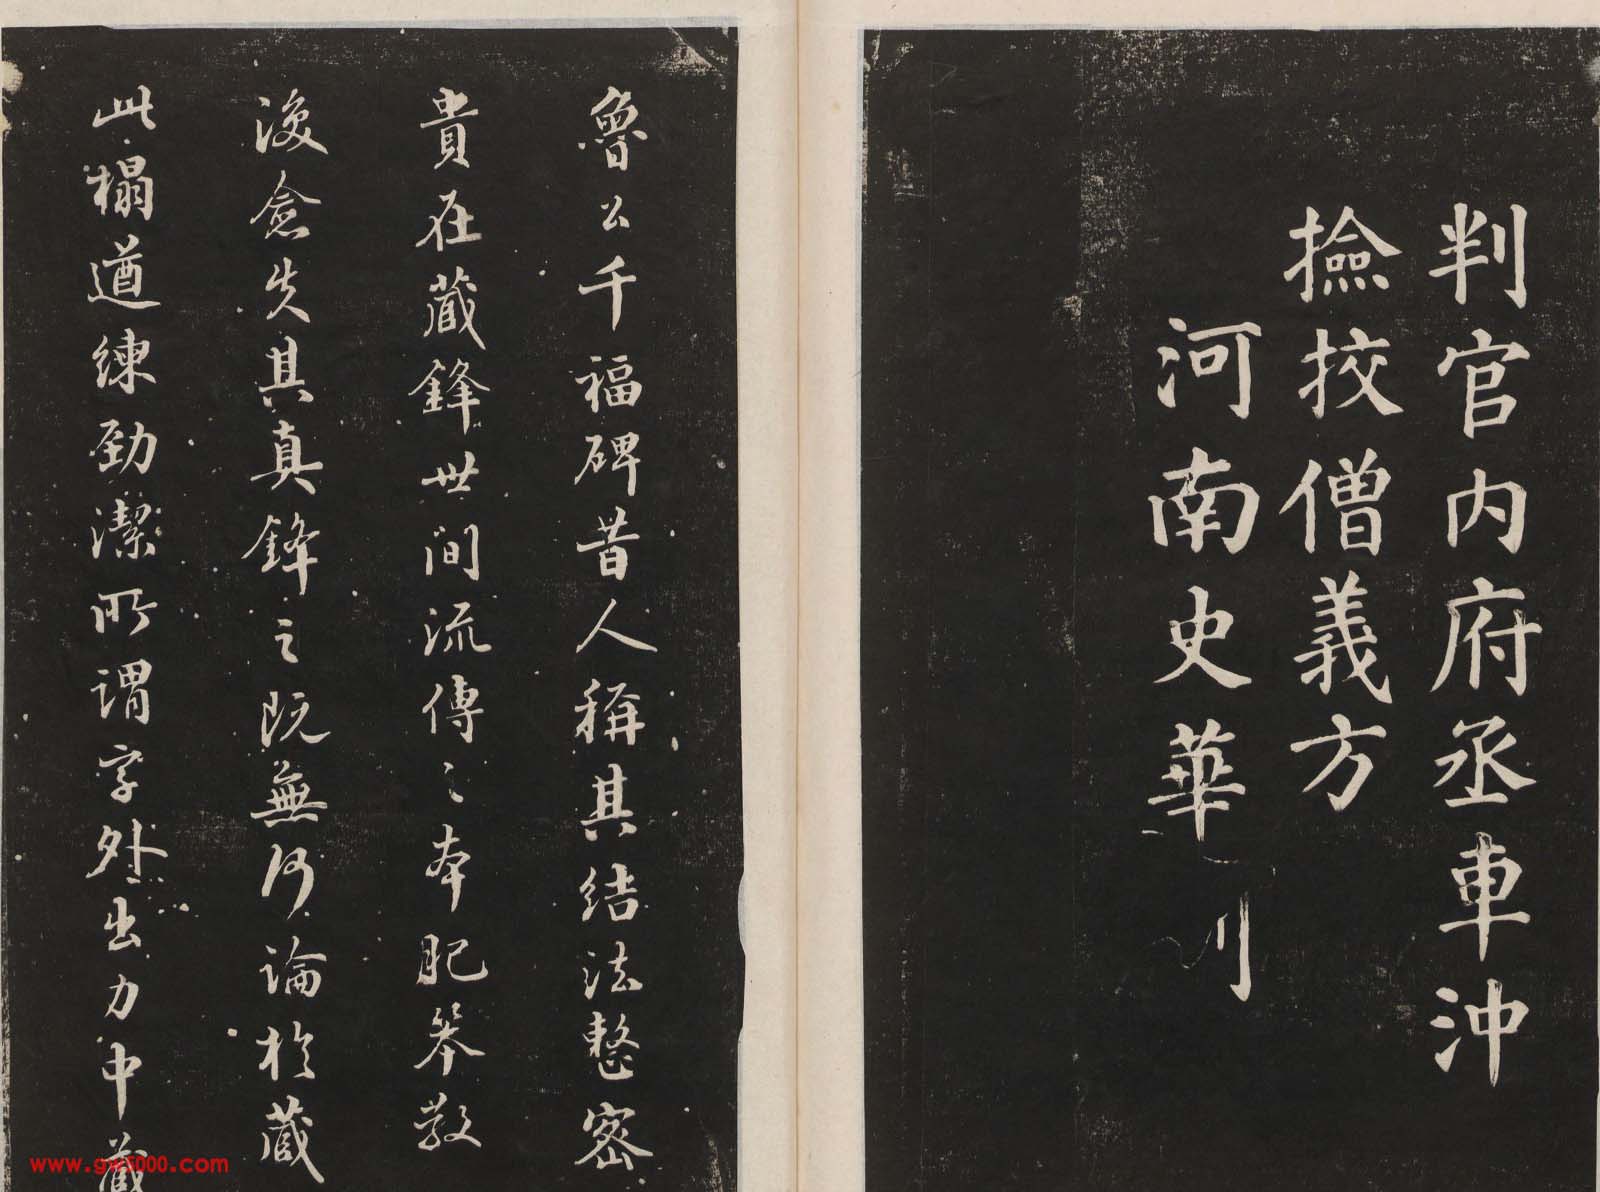 判官内府丞車沖
撿挍僧義方
河南史華刊
魯公千福碑昔人稱其結法整密
貴在藏鋒世間流傳之本肥笨散
漫僉失其真鋒之既無何論於藏
此榻遒練勁潔所謂字外出力中藏
www.gw5000.com